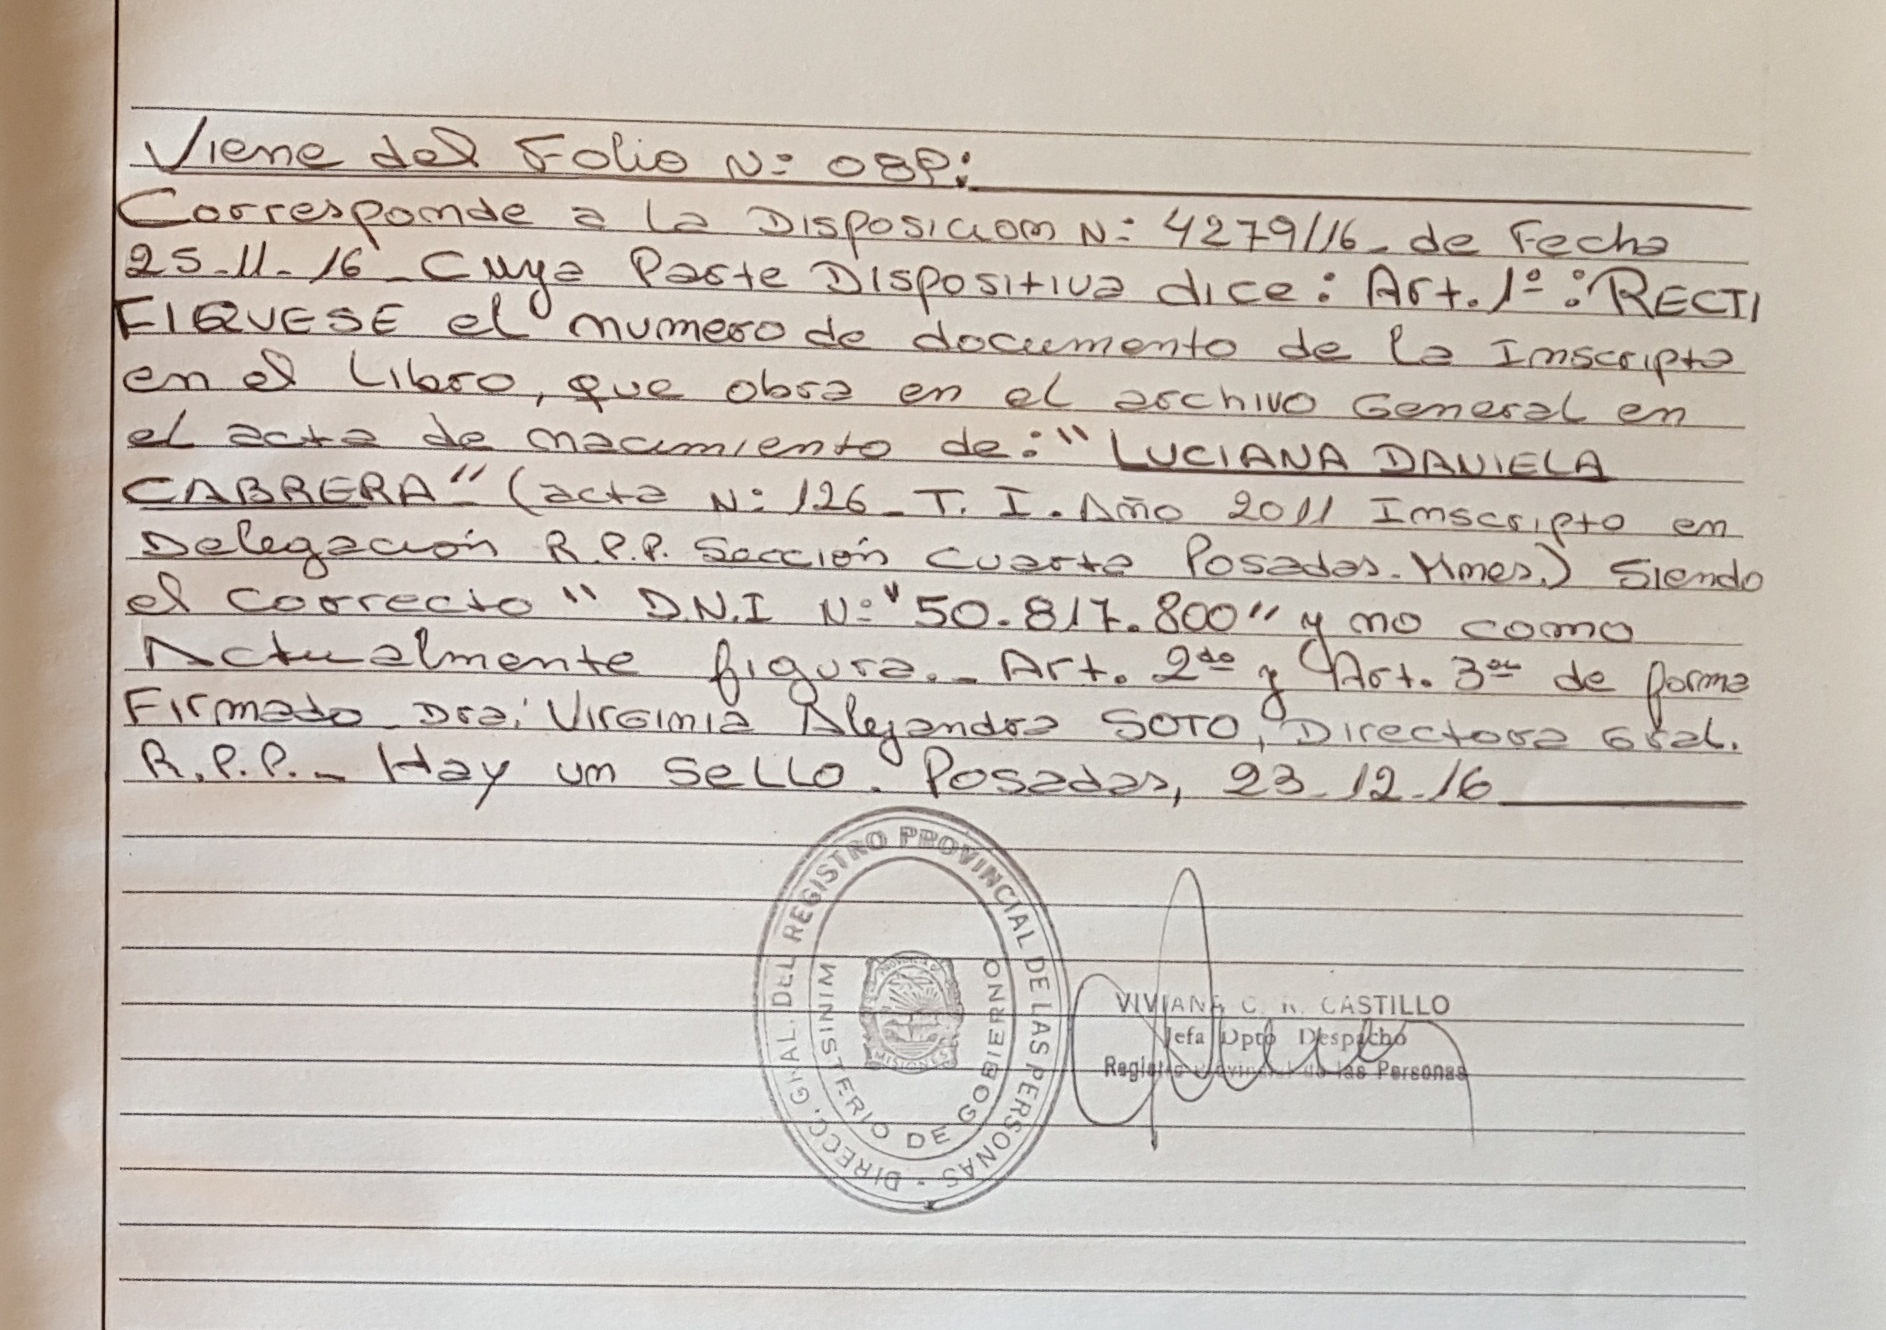 Viene del Folio Nº 089:
Corresponde a la Disposicion Nº 4279/16_ de Fecha
25-11-16_ Cuya Parte Dispositiva dice: Art. 1º: RECTI
FIQUESE el numero de documento de la Inscripta
en el Libro, que obra en el archivo General en
el acta de nacimiento de: "LUCIANA DANIELA
CABRERA" (acta Nº 126_ T. I. Año 2011 Inscripto en
Delegación R.P.P. Sección Cuarta Posadas. Mnes.) Siendo
el correcto " D.N.I Nº "50.817.800" y no como
Actualmente figura._ Art. 2do y Art. 3er de forma
Firmado Dra. Virginia Alejandra SOTO, Directora Gral.
R.P.P._ Hay un sello. Posadas, 23-12-16
DIRECC. GRAL. DEL REGISTRO PROVINCIAL DE LAS PERSONAS -
MINISTERIO DE GOBIERNO
MISIONES
VIVIANA C. R. CASTILLO
Jefa Dpto Despacho
Registro Provincial de las Personas